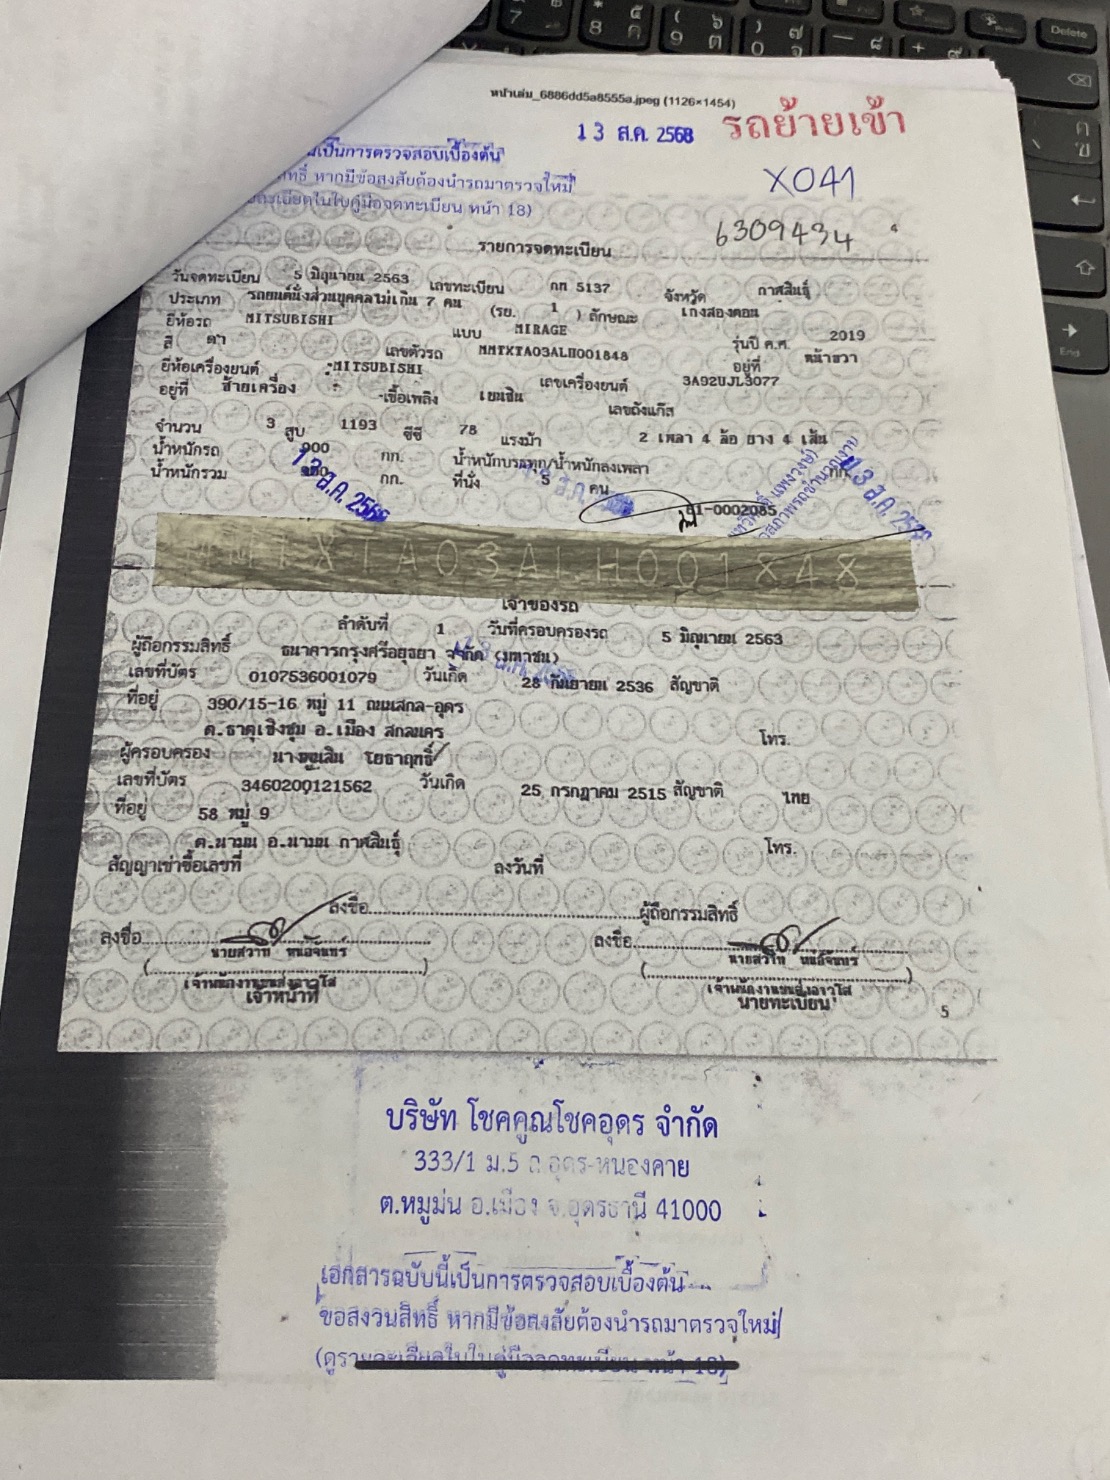 หน้าเล่ม_6886dd5a8555a.jpeg (1126×1454)
13 ส.ค. 2568 รถย้ายเข้า
เป็นการตรวจสอบเบื้องต้น
หากมีข้อสงสัยต้องนำรถมาตรวจใหม่
ในใบคู่มือจดทะเบียน หน้า 18)
X041
6309434
รายการจดทะเบียน
วันจดทะเบียน 5 มิถุนายน 2563 เลขทะเบียน กท 5137 จังหวัด กาฬสินธุ์
ประเภท รถยนต์นั่งส่วนบุคคลไม่เกิน 7 คน (รย. 1 ) ลักษณะ เก๋งสองตอน
ยี่ห้อรถ MITSUBISHI แบบ MIRAGE รุ่นปี ค.ศ. 2019
สี ดำ เลขตัวรถ MMTXTA03ALH001848 อยู่ที่ หน้าขวา
ยี่ห้อเครื่องยนต์ MITSUBISHI เลขเครื่องยนต์ 3A92UJL3077
อยู่ที่ ซ้ายเครื่อง เชื้อเพลิง เบนซิน เลขถังแก๊ส
จำนวน 3 สูบ 1193 ซีซี 78 แรงม้า 2 เพลา 4 ล้อ ยาง 4 เส้น
น้ำหนักรถ 900 กก. น้ำหนักบรรทุก/น้ำหนักลงเพลา กก.
น้ำหนักรวม กก. ที่นั่ง 5 คน
13 ส.ค. 2568
13 ส.ค.
61-0002085
MMTXTA03ALH001848
เจ้าของรถ
ลำดับที่ 1 วันที่ครอบครองรถ 5 มิถุนายน 2563
ผู้ถือกรรมสิทธิ์ ธนาคารกรุงศรีอยุธยา จำกัด (มหาชน)
เลขที่บัตร 0107536001079 วันเกิด 28 กันยายน 2536 สัญชาติ
ที่อยู่ 390/15-16 หมู่ 11 ถนนสกล-อุดร
ต.ธาตุเชิงชุม อ.เมือง สกลนคร โทร.
ผู้ครอบครอง โยธาฤทธิ์
เลขที่บัตร 3460200121562 วันเกิด 25 กรกฎาคม 2515 สัญชาติ ไทย
ที่อยู่ 58 หมู่ 9
ต.นามน อ.นามน กาฬสินธุ์ โทร.
สัญญาเช่าซื้อเลขที่ ลงวันที่
ลงชื่อ ผู้ถือกรรมสิทธิ์
ลงชื่อ ลงชื่อ
เจ้าพนักงานขนส่งอาวุโส เจ้าพนักงานขนส่งอาวุโส
เจ้าหน้าที่ นายทะเบียน
5
บริษัท โชคคูณโชคอุดร จำกัด
333/1 ม.5 ถ.อุดร-หนองคาย
ต.หมูม่น อ.เมือง จ.อุดรธานี 41000
เอกสารฉบับนี้เป็นการตรวจสอบเบื้องต้น
ขอสงวนสิทธิ์ หากมีข้อสงสัยต้องนำรถมาตรวจใหม่